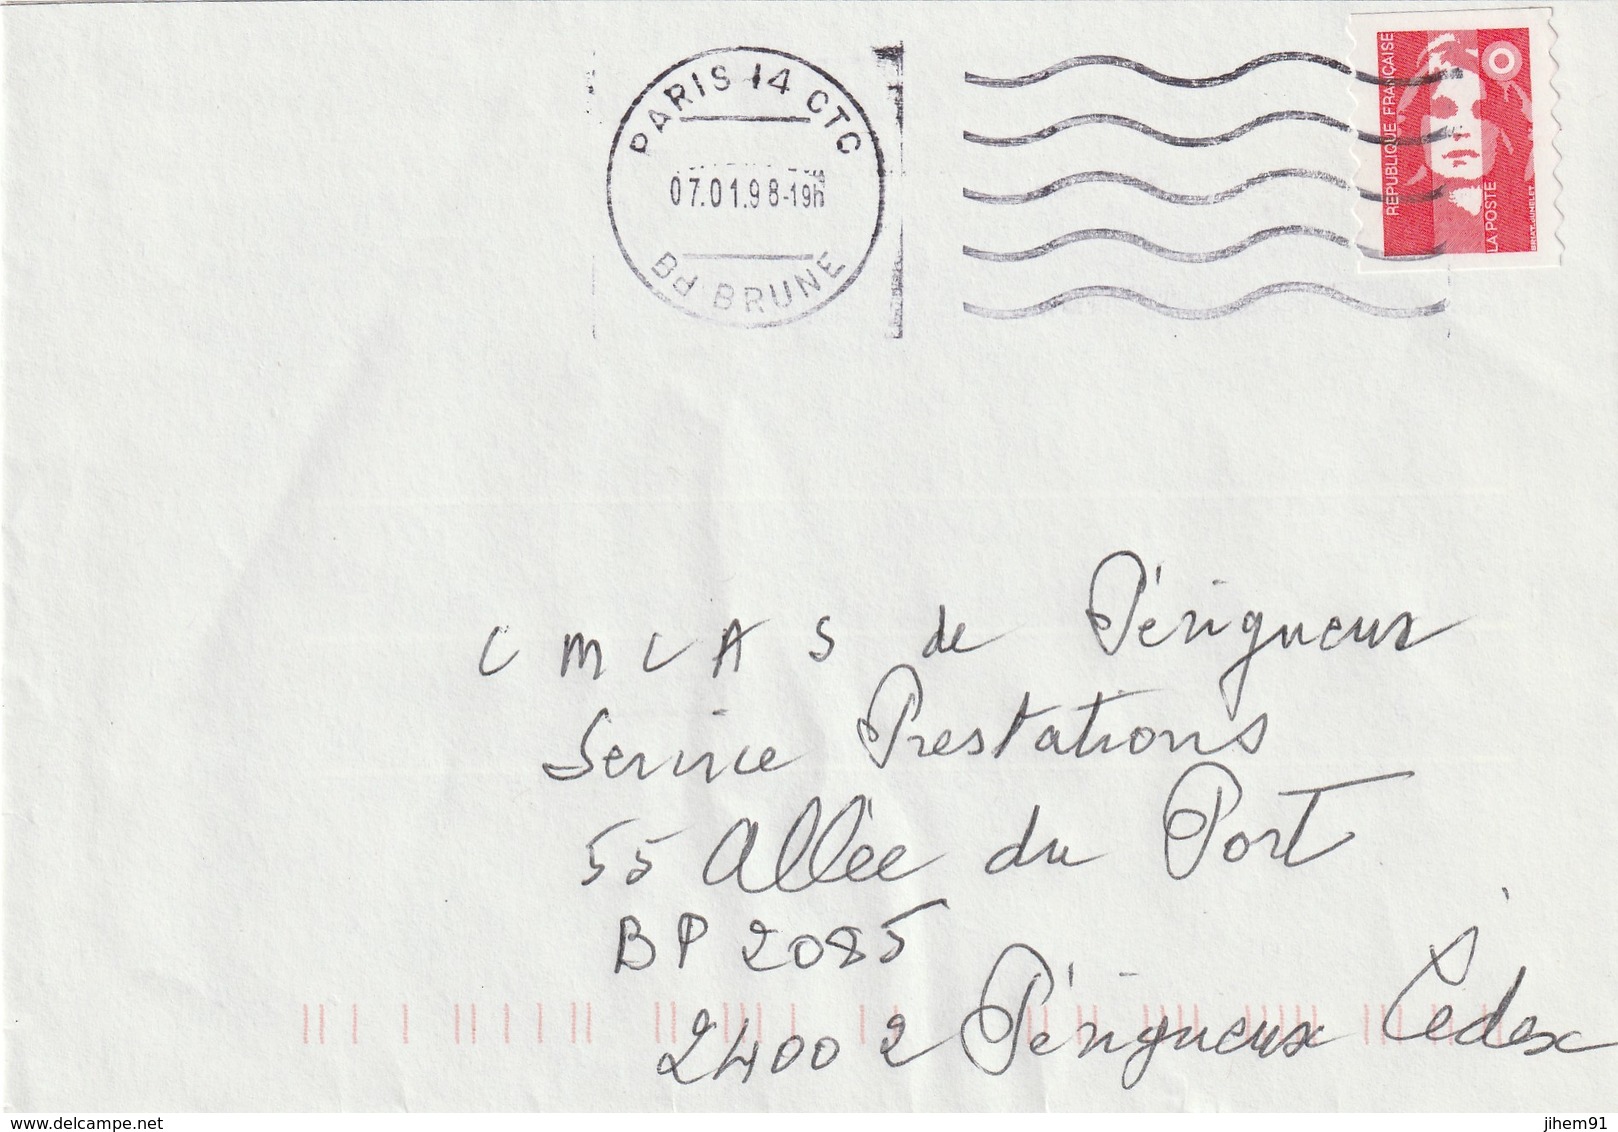 PARIS 14 CTC
07.01.98-19h
Bd BRUNE
REPUBLIQUE FRANÇAISE
LA POSTE
BRIAT.JUMELET
C M C A S de Périgueux
Service Prestations
55 Allée du Port
BP 2085
24002 Périgueux Cédex
www.delcampe.net
jihem91